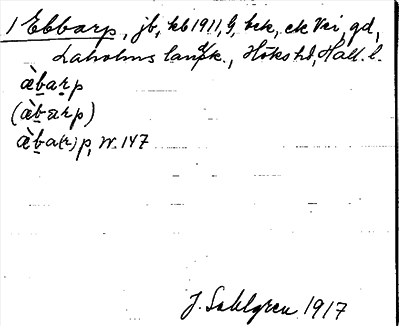 1 Ebbarp, jb, kb 1911, G, bck, ck Vei, gd,
Laholms landsk., Höks hd, Hall. l.
æ̀barp
(æ̀barp)
æ̀ba(r)p, W. 147
J. Sahlgren 1917